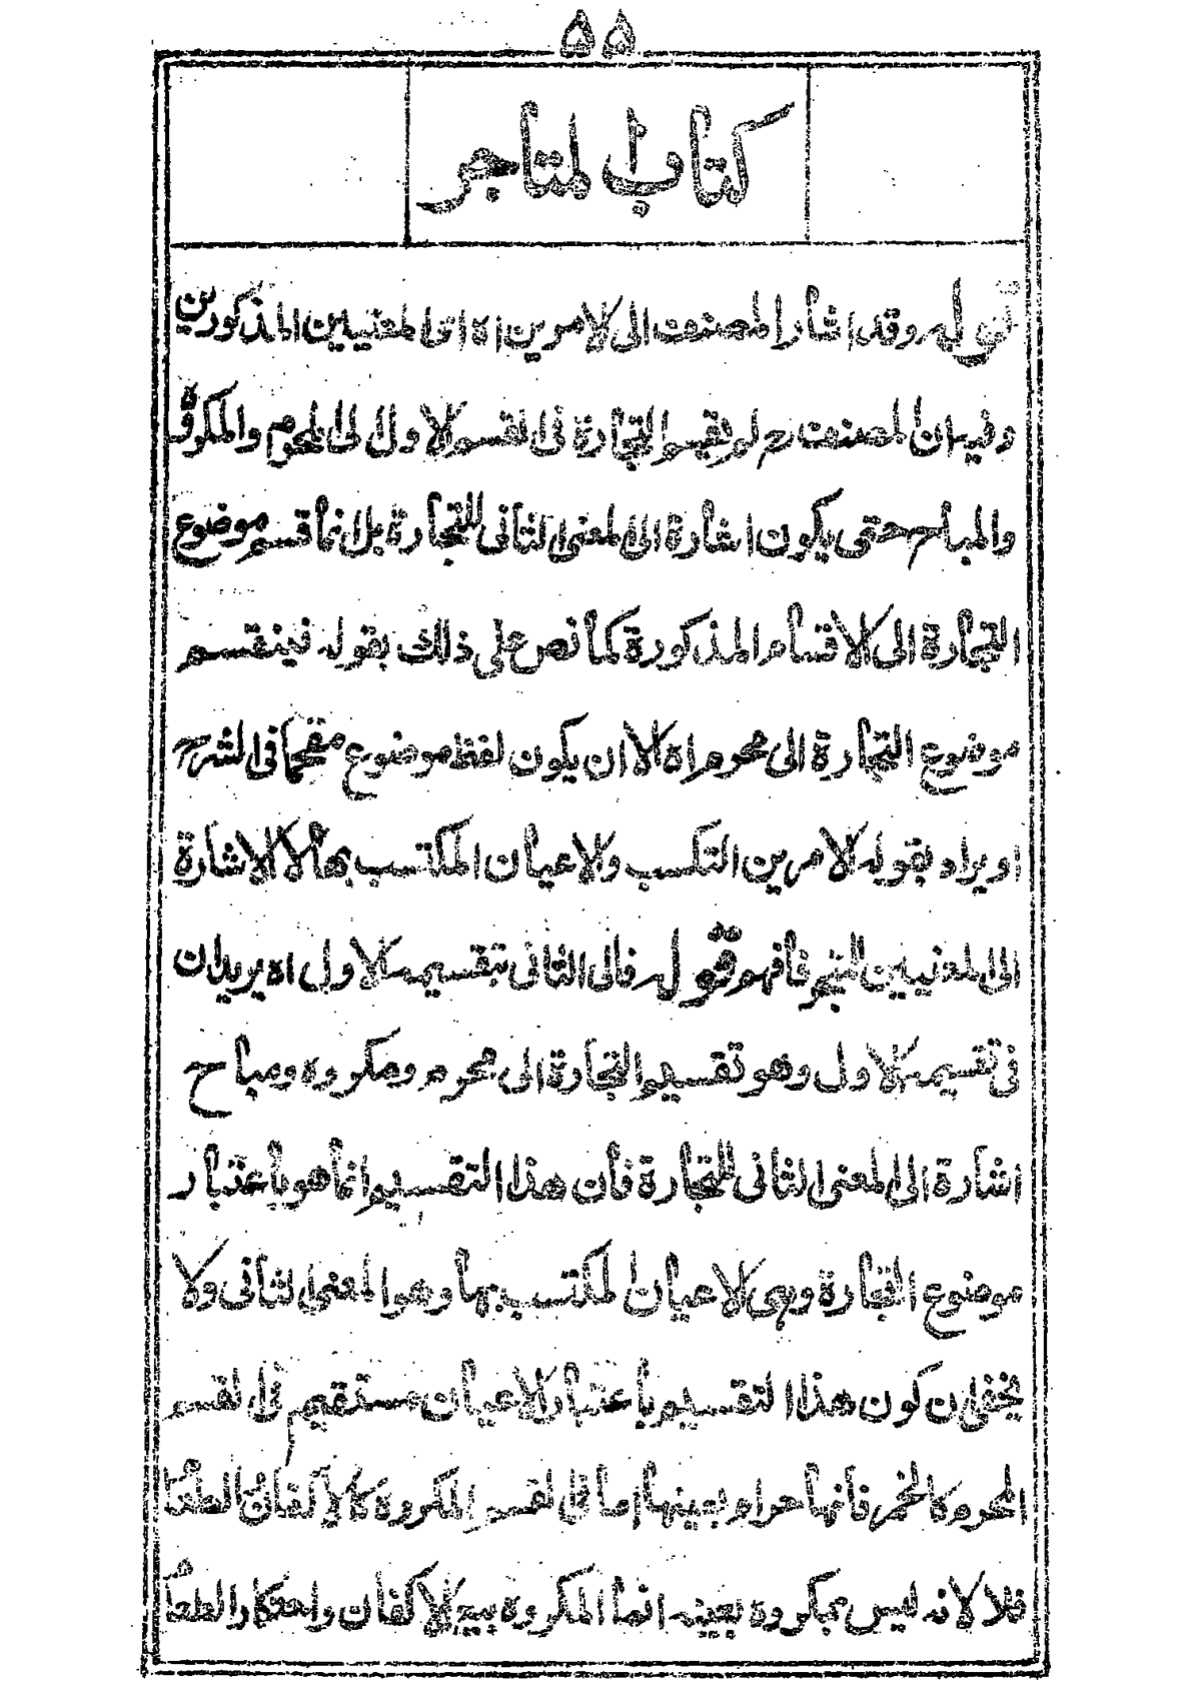 ۵۵
كتاب المتاجر
قوله وقد اشار المصنف الى الامرين اه اى المعنيين المذكورين
وفيه ان المصنف رح لم يقسم التجارة فى القسم الاول الى المحرم والمكروه
والمباح حتى يكون اشارة الى المعنى الثانى للتجارة بل انما قسم موضوع
التجارة الى الاقسام المذكورة كما نص على ذلك بقوله فينقسم
موضوع التجارة الى محرم اه الا ان يكون لفظ موضوع مقحما فى الشرح
او يراد بقوله الامرين التكسب والاعيان المكتسب بها لا الاشارة
الى المعنيين فافهم قوله فالى الثانى بتقسيمه الاول اه يريد ان
فى تقسيمه الاول وهو تقسيم التجارة الى محرم ومكروه ومباح
اشارة الى المعنى الثانى للتجارة فان هذا التقسيم انما هو باعتبار
موضوع التجارة وهى الاعيان المكتسب بها وهو المعنى الثانى ولا
يخفى ان كون هذا التقسيم باعتبار الاعيان مستقيم فى القسم
المحرم كالخمر فانها حرام بعينها اما فى القسم المكروه كالاكفان والطعام
فلا لانه ليس بمكروه بعينه انما المكروه بيع الاكفان واحتكار الطعام